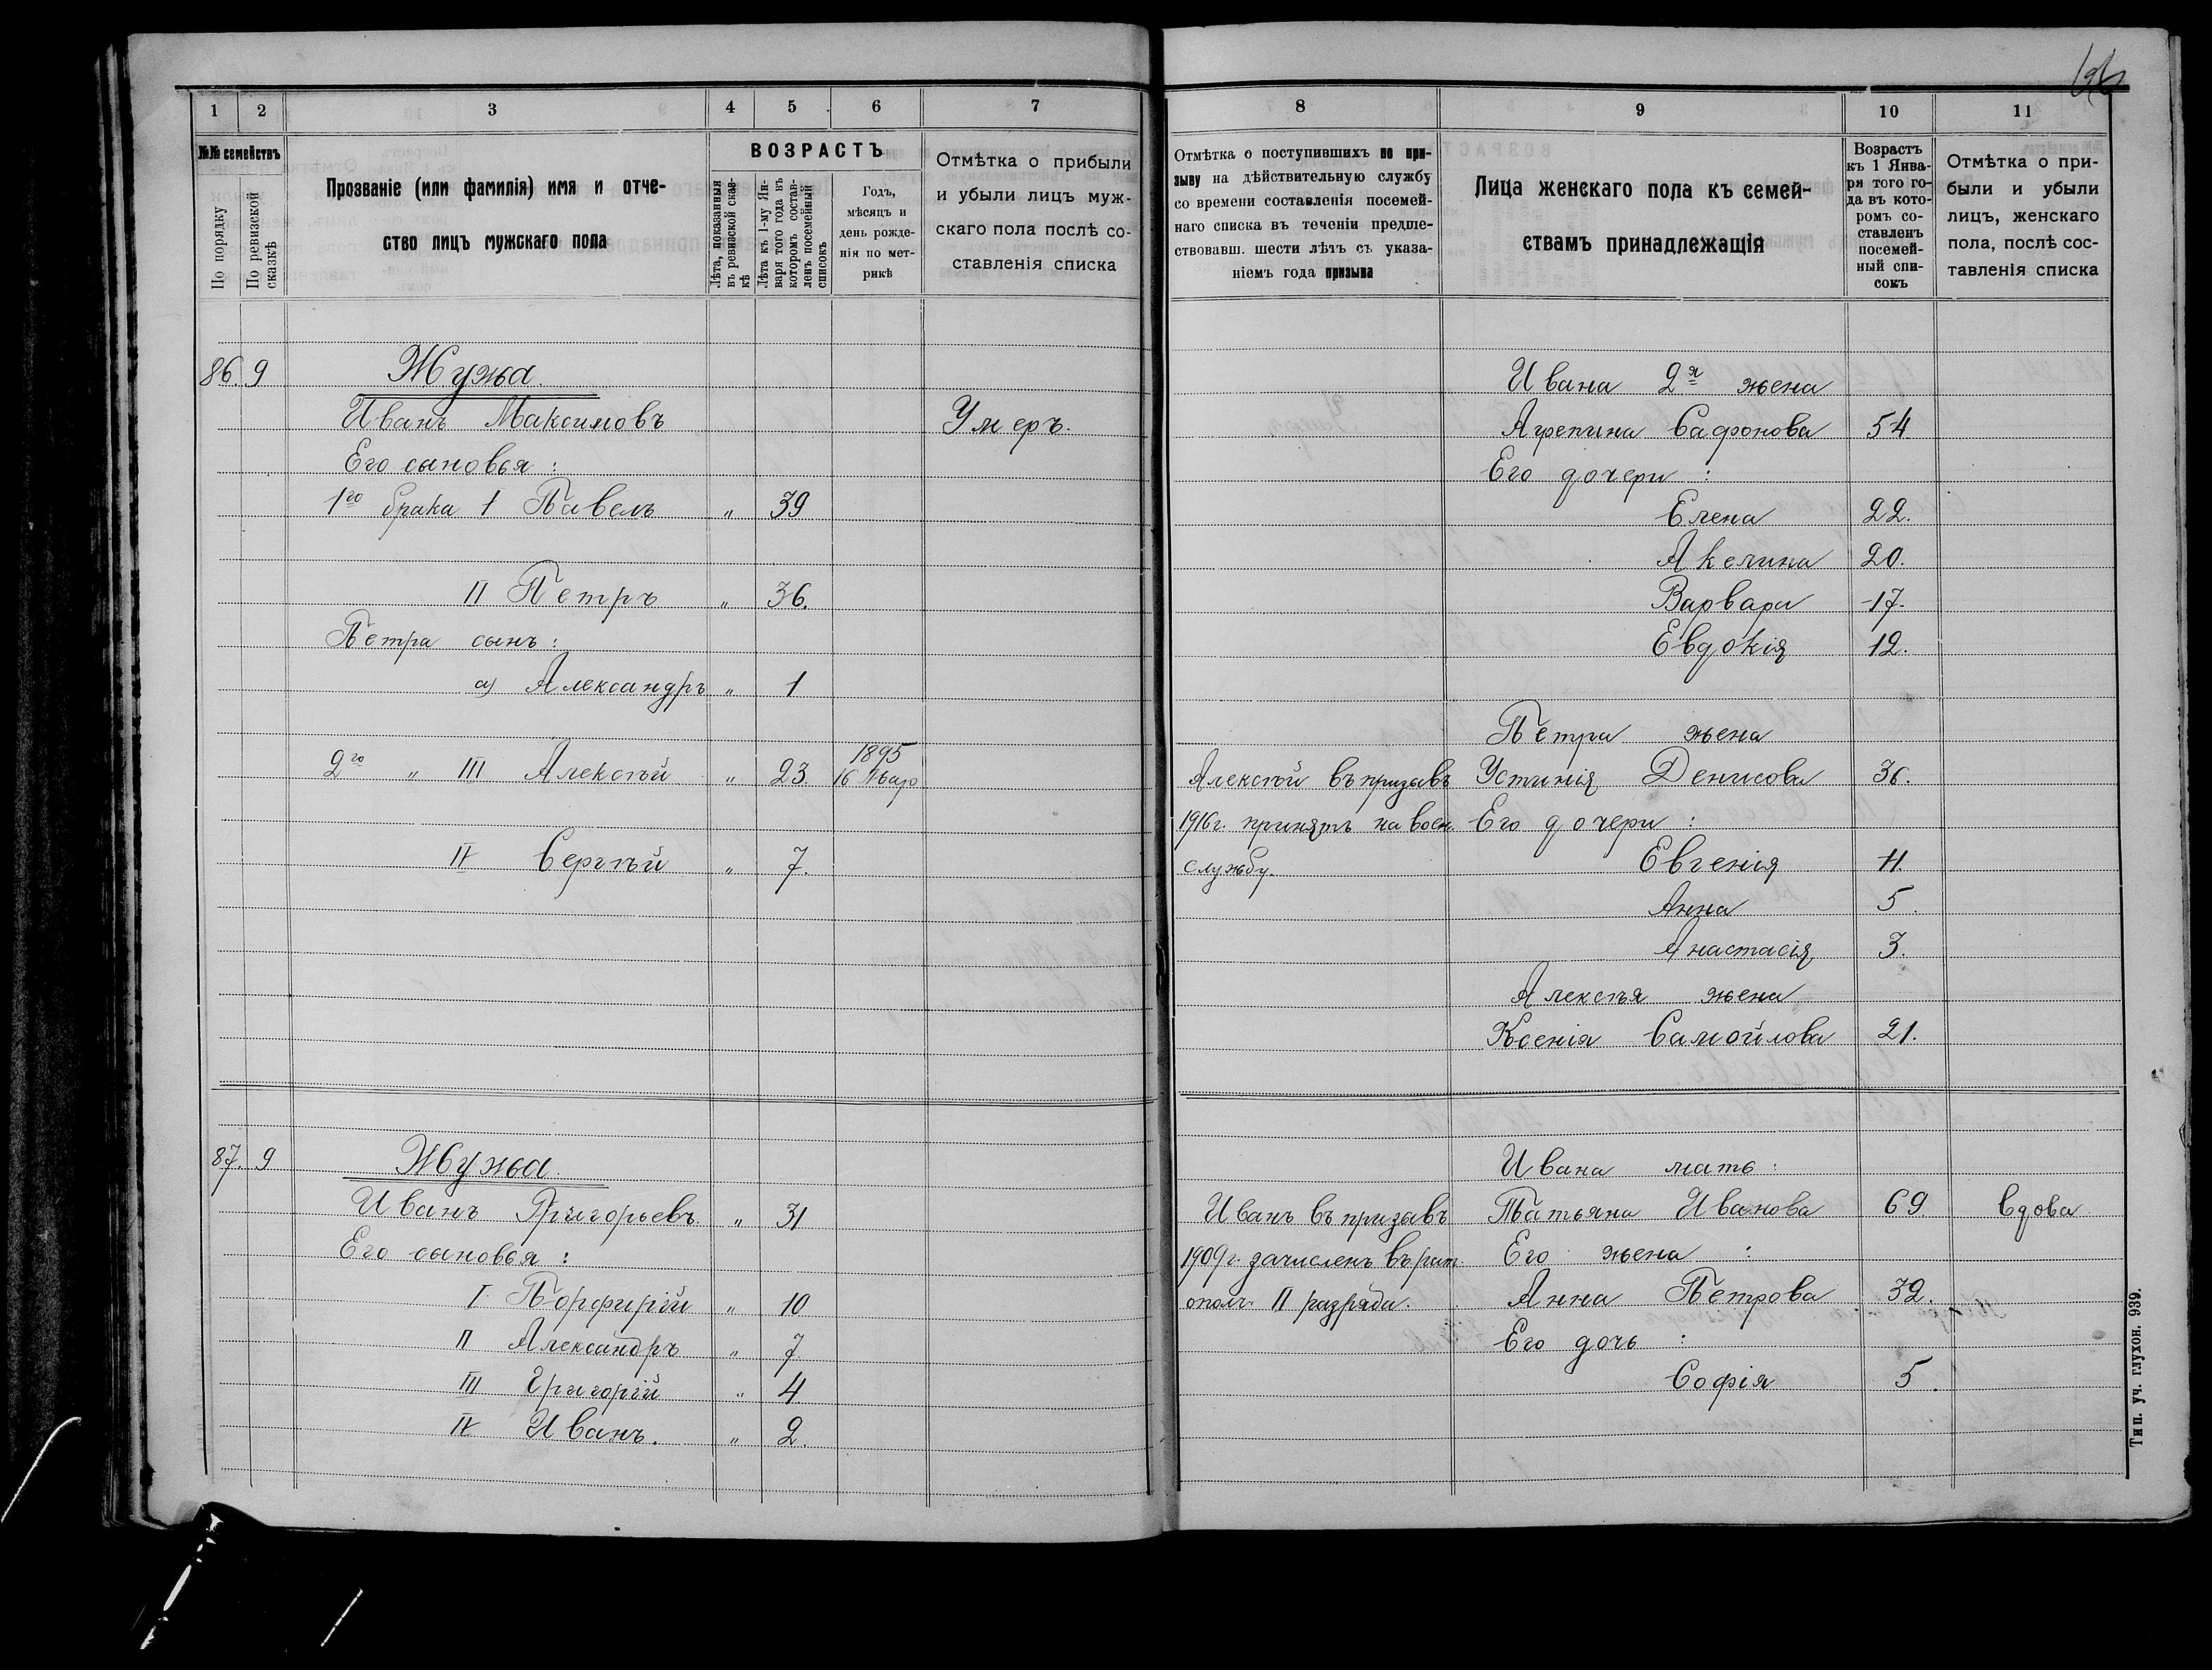 1 2 3 4 5 6 7
№№ семействъ
По порядку
По ревизской сказкѣ
Прозваніе (или фамилія) имя и отче-
ство лицъ мужскаго пола
ВОЗРАСТЪ
Лѣта, показанныя въ ревизской сказ-кѣ
Лѣта къ 1-му Ян-варя того года въ которомъ состав-ленъ посемейный списокъ
Годъ,
мѣсяцъ и
день рожде-
нія по мет-
рикѣ
Отмѣтка о прибыли
и убыли лицъ муж-
скаго пола послѣ со-
ставленія списка
86. 9 Жужа.
Иванъ Максимовъ Умеръ.
Его сыновья :
1го брака 1 Павелъ „ 39
II Петръ „ 36.
Петра сынъ :
а) Александръ „ 1
1895
2го „ III Алексѣй „ 23. 16
IV Сергѣй „ 7.
87. 9 Жужа.
Иванъ Григорьевъ. „ 31
Его сыновья :
I Порфирій „ 10
II Александръ „ 7
III Григорій „ 4.
IV Иванъ. „ 2.
8 9 10 11
Отмѣтка о поступившихъ по при-
зыву на дѣйствительную службу
со времени составленія посемей-
наго списка въ теченіи предше-
ствовавш. шести лѣтъ съ указа-
ніемъ года призыва
Лица женскаго пола къ семей-
ствамъ принадлежащія
Возрастъ
къ 1 Янва-
ря того го-
да въ кото-
ромъ со-
ставленъ
посемей-
ный спи-
сокъ
Отмѣтка о при-
были и убыли
лицъ, женскаго
пола, послѣ сос-
тавленія списка
Ивана 2я жена
Агрепина Сафонова 54.
Его дочери :
Елена 22.
Акелина 20.
Варвара 17.
Евдокія 12.
Петра жена
Алексѣй въ призывъ Устинія Денисова 36.
1916г. принятъ на воен. Его дочери :
службу. Евгенія 11.
Анна 5.
Анастасія 3.
Алексѣя жена
Ксенія Самойлова 21.
Ивана мать :
Иванъ въ призывъ Татьяна Иванова 69. вдова
1909г. зачисленъ въ рат. Его жена :
ополч. II разряда. Анна Петрова 32.
Его дочь :
Софія 5.
Тип. уч. глухон. 939.